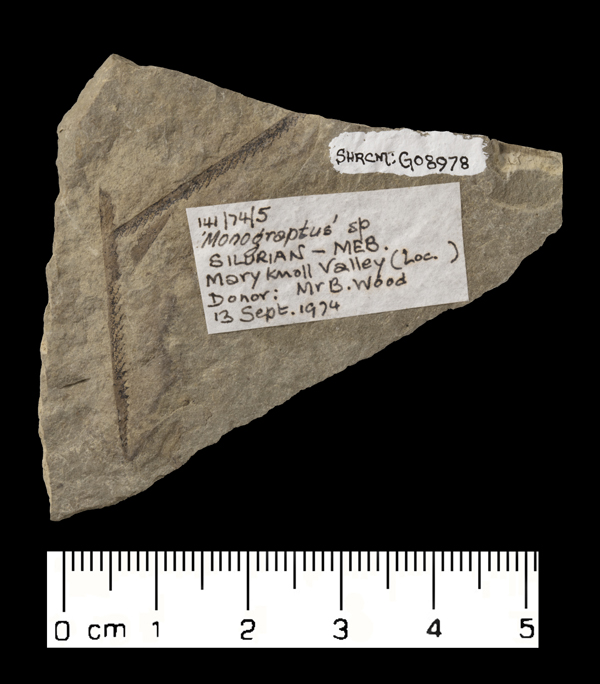 SHRCM: G08978
141/74/5
'Monograptus' sp
SILURIAN – MEB.
Mary Knoll Valley (Loc. )
Donor: Mr B. Wood
13 Sept. 1974
0 cm 1 2 3 4 5